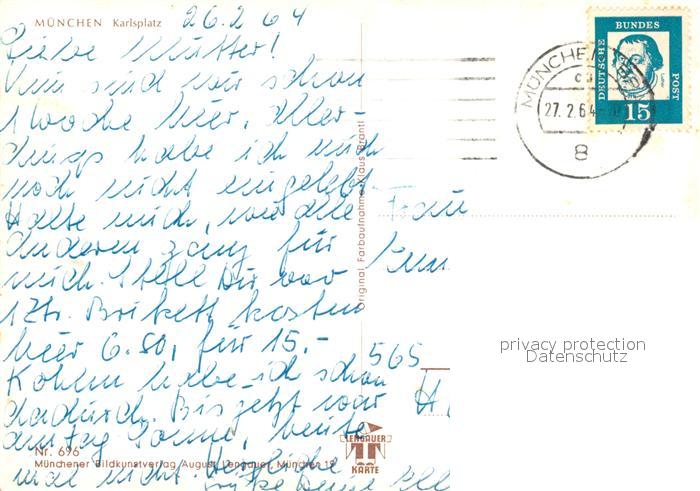 MÜNCHEN Karlsplatz
26.2.64
Liebe Mutter!
Nun sind wir schon
1 Woche hier, aller-
dings habe ich mich
noch nicht eingelebt.
Halte mich, wie alle
Anderen ganz für
mich. Stell Dir vor
1 Ztr. Brikett kosten
hier 6.80, für 15.-
Kohlen habe ich schon
dadurch. Bis jetzt war
Sonne, heute
mal nicht. Herzliche
Grüße Deine
Frau
565
H
Nr. 696
Münchener Bildkunstverlag August Lengauer, München 19
LENGAUER
KARTE
Original Farbaufnahme Klaus Brantl
MÜNCHEN
27.2.64
8
DEUTSCHE
BUNDES
POST
15
privacy protection
Datenschutz